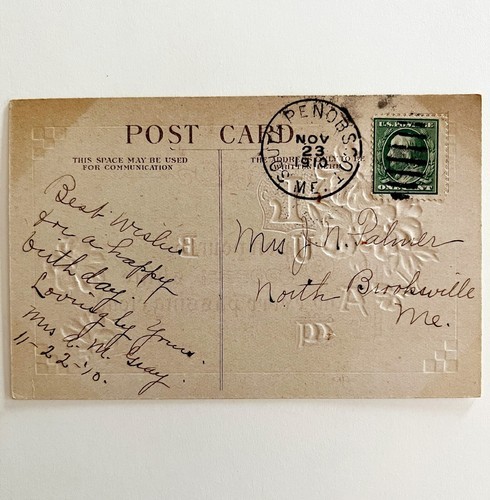 POST CARD
THIS SPACE MAY BE USED
FOR COMMUNICATION
THE ADDRESS TO BE
WRITTEN
SOUTH PENOBSCOT
NOV
23
1910
ME.
U.S. POSTAGE
ONE CENT
Best Wishes
for a happy
birthday
Lovingly Yours.
Mrs M. Gray.
11-22-'10.
Mrs J. N. Palmer
North Brooksville
Me.